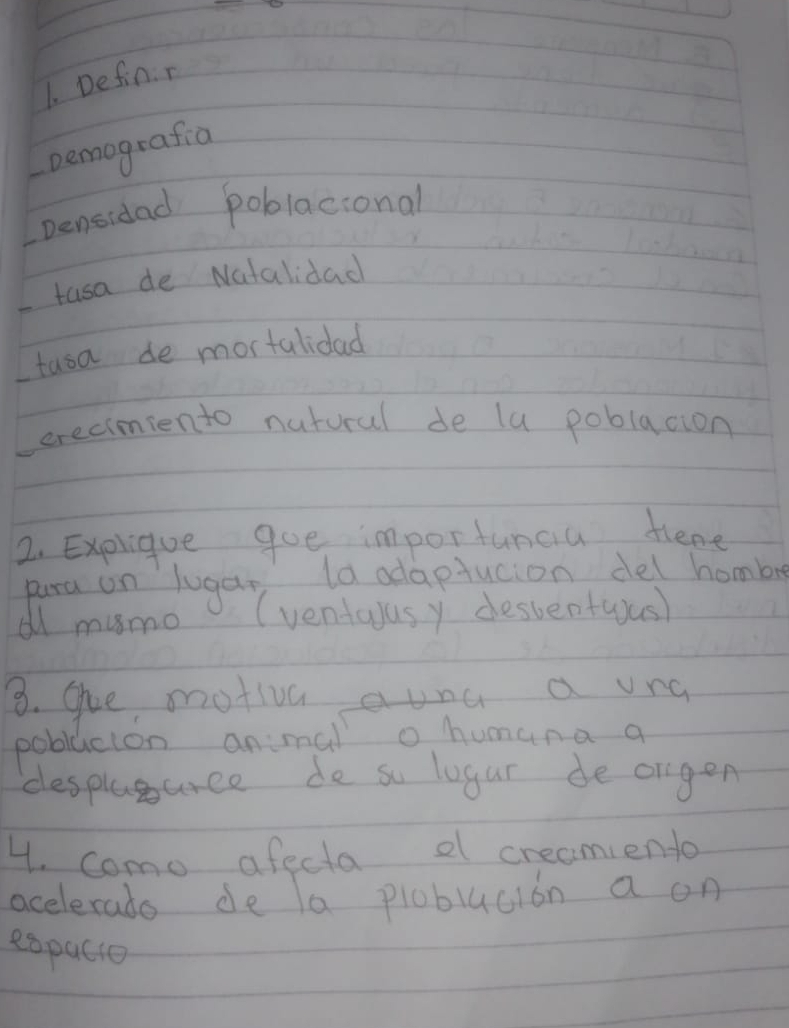 1. Definir
- Demografia
- Densidad poblacional
- tasa de Natalidad
- tasa de mortalidad
- crecimiento natural de la poblacion
2. Explique que importancia tiene
para un lugar, la adaptacion del hombre
al mismo (ventajas y desventajas)
3. Que motiva a una
población animal o humana a
desplazarce de su lugar de origen
4. Como afecta el crecimiento
acelerado de la ploblación a un
espacio